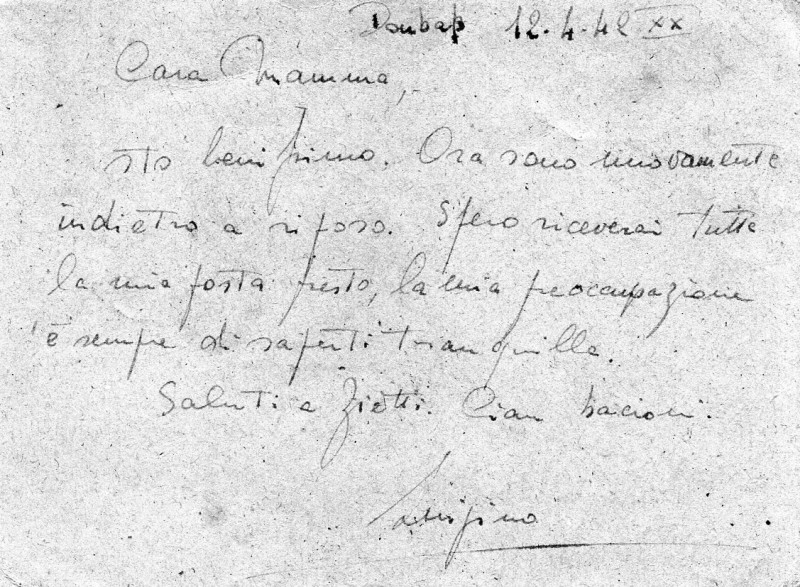 Donbap 12.4.42 XX
Cara Mamma,
sto benissimo. Ora sono nuovamente
indietro a riposo. Spero riceverai tutta
la mia posta presto, la mia preoccupazione
è sempre di saperti tranquilla.
Saluti a Zietti. Ciao bacioni.